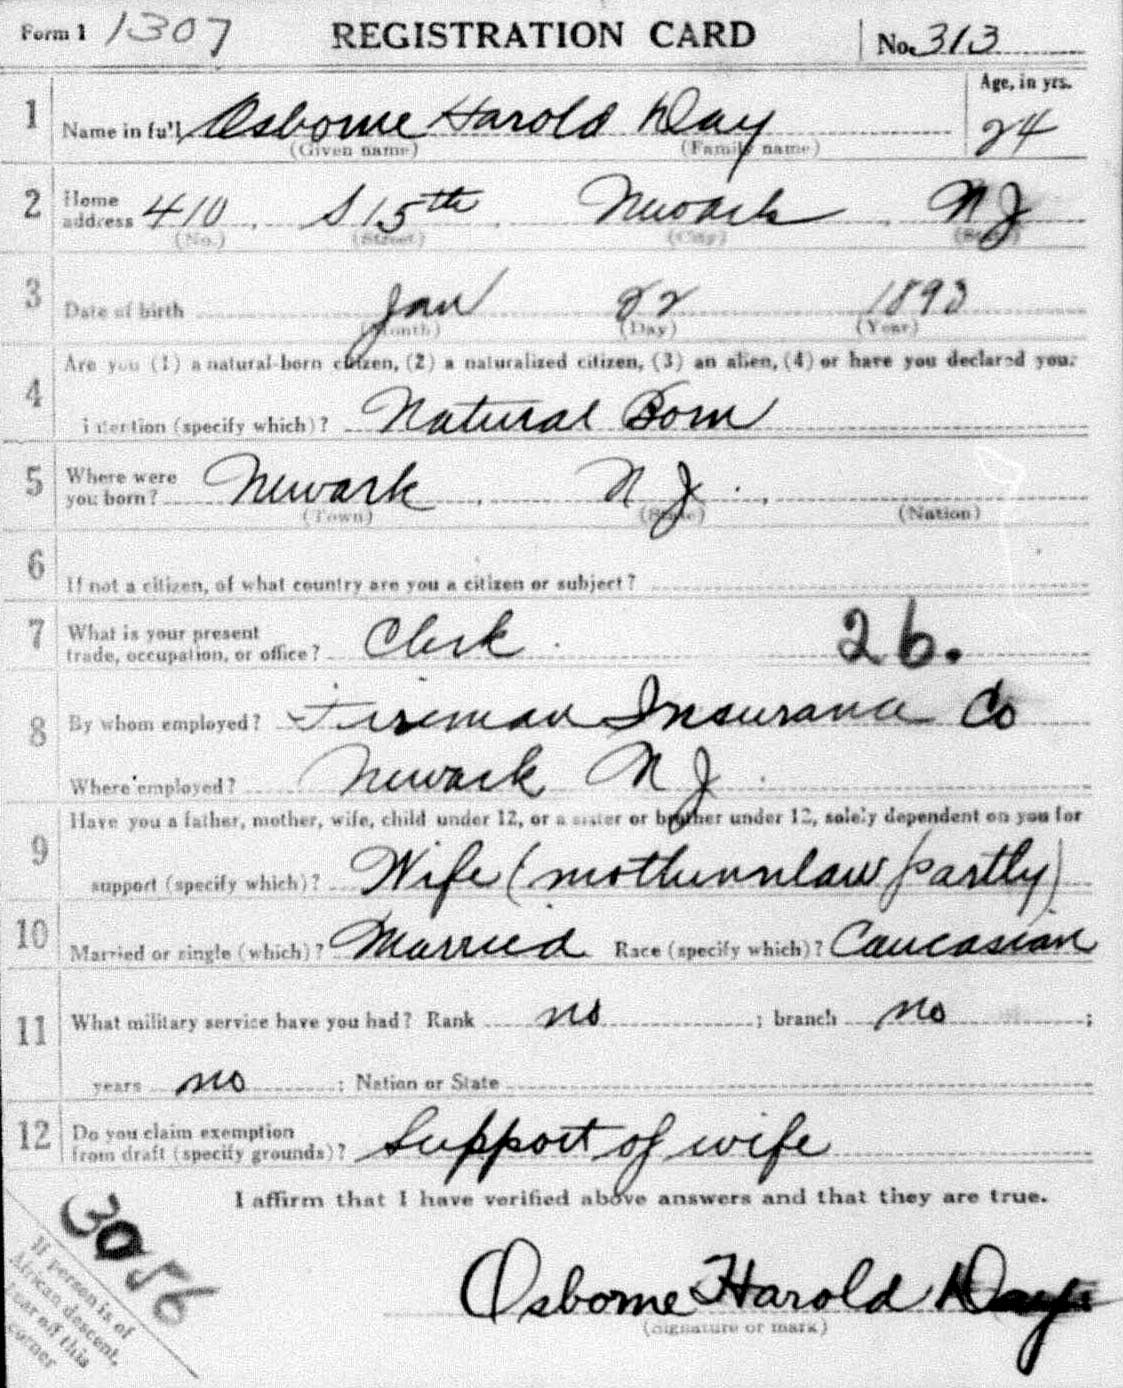 Form 1 1307 REGISTRATION CARD No. 313
1 Name in full Osborne Harold Day Age, in yrs. 24
(Given name) (Family name)
2 Home address 410 S 15th Newark N J
(No.) (Street) (City) (State)
3 Date of birth Jan 22 1893
(Month) (Day) (Year)
Are you (1) a natural-born citizen, (2) a naturalized citizen, (3) an alien, (4) or have you declared your
4 intention (specify which)? Natural Born
5 Where were you born? Newark N J
(Town) (State) (Nation)
6 If not a citizen, of what country are you a citizen or subject?
7 What is your present trade, occupation, or office? Clerk 26.
8 By whom employed? Fireman Insurance Co
Where employed? Newark N J
Have you a father, mother, wife, child under 12, or a sister or brother under 12, solely dependent on you for
9 support (specify which)? Wife (motherinlaw partly)
10 Married or single (which)? Married Race (specify which)? Caucasian
11 What military service have you had? Rank no ; branch no ;
years no ; Nation or State
12 Do you claim exemption from draft (specify grounds)? Support of wife
I affirm that I have verified above answers and that they are true.
3056
Osborne Harold Day
(Signature or mark)
If person is of
African descent,
tear off this
corner